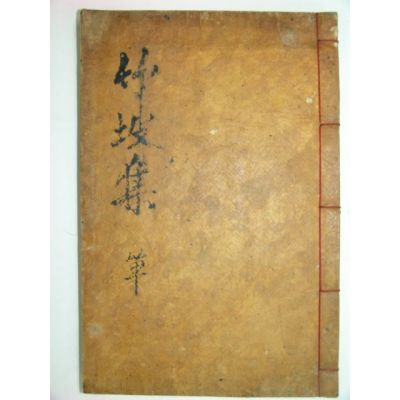 竹坡集
單